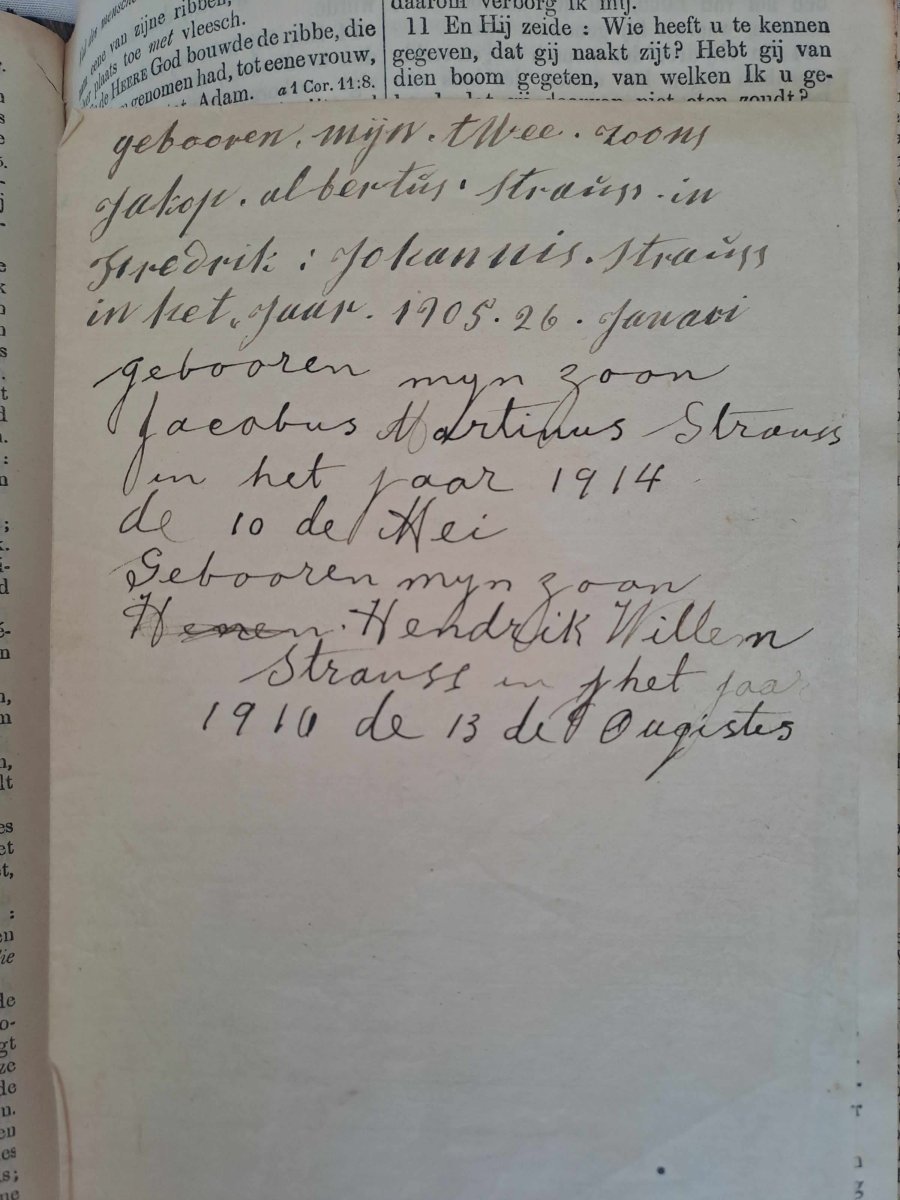 eene van zijne ribben,
plaats toe met vleesch.
de HEERE God bouwde de ribbe, die
genomen had, tot eene vrouw,
Adam. a 1 Cor. 11:8.
daarom verborg ik mij.
11 En Hij zeide : Wie heeft u te kennen
gegeven, dat gij naakt zijt? Hebt gij van
dien boom gegeten, van welken Ik u ge-
gebooren . mijn . twee . zoons
Jakop . albertus . Strauss . in
Fredrik : Johannis . Strauss
in het Jaar . 1905 . 26 . Januari
gebooren myn zoon
Jacobus Martinus Strauss
in het jaar 1914
de 10 de Mei
Gebooren myn zoon
Hendrik Willem
Strauss in het jaar
de 13 de Ougistes